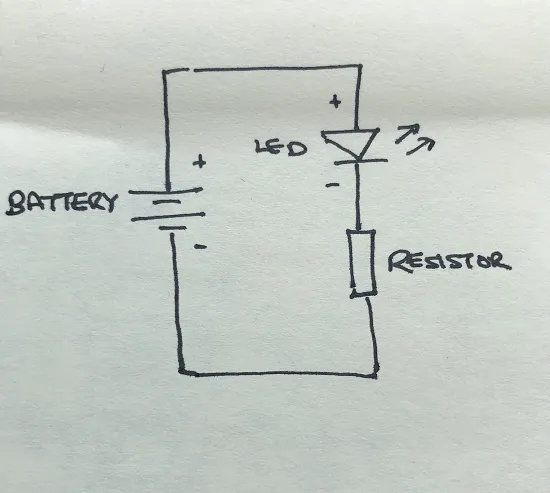 +
LED
+
BATTERY
-
-
RESISTOR